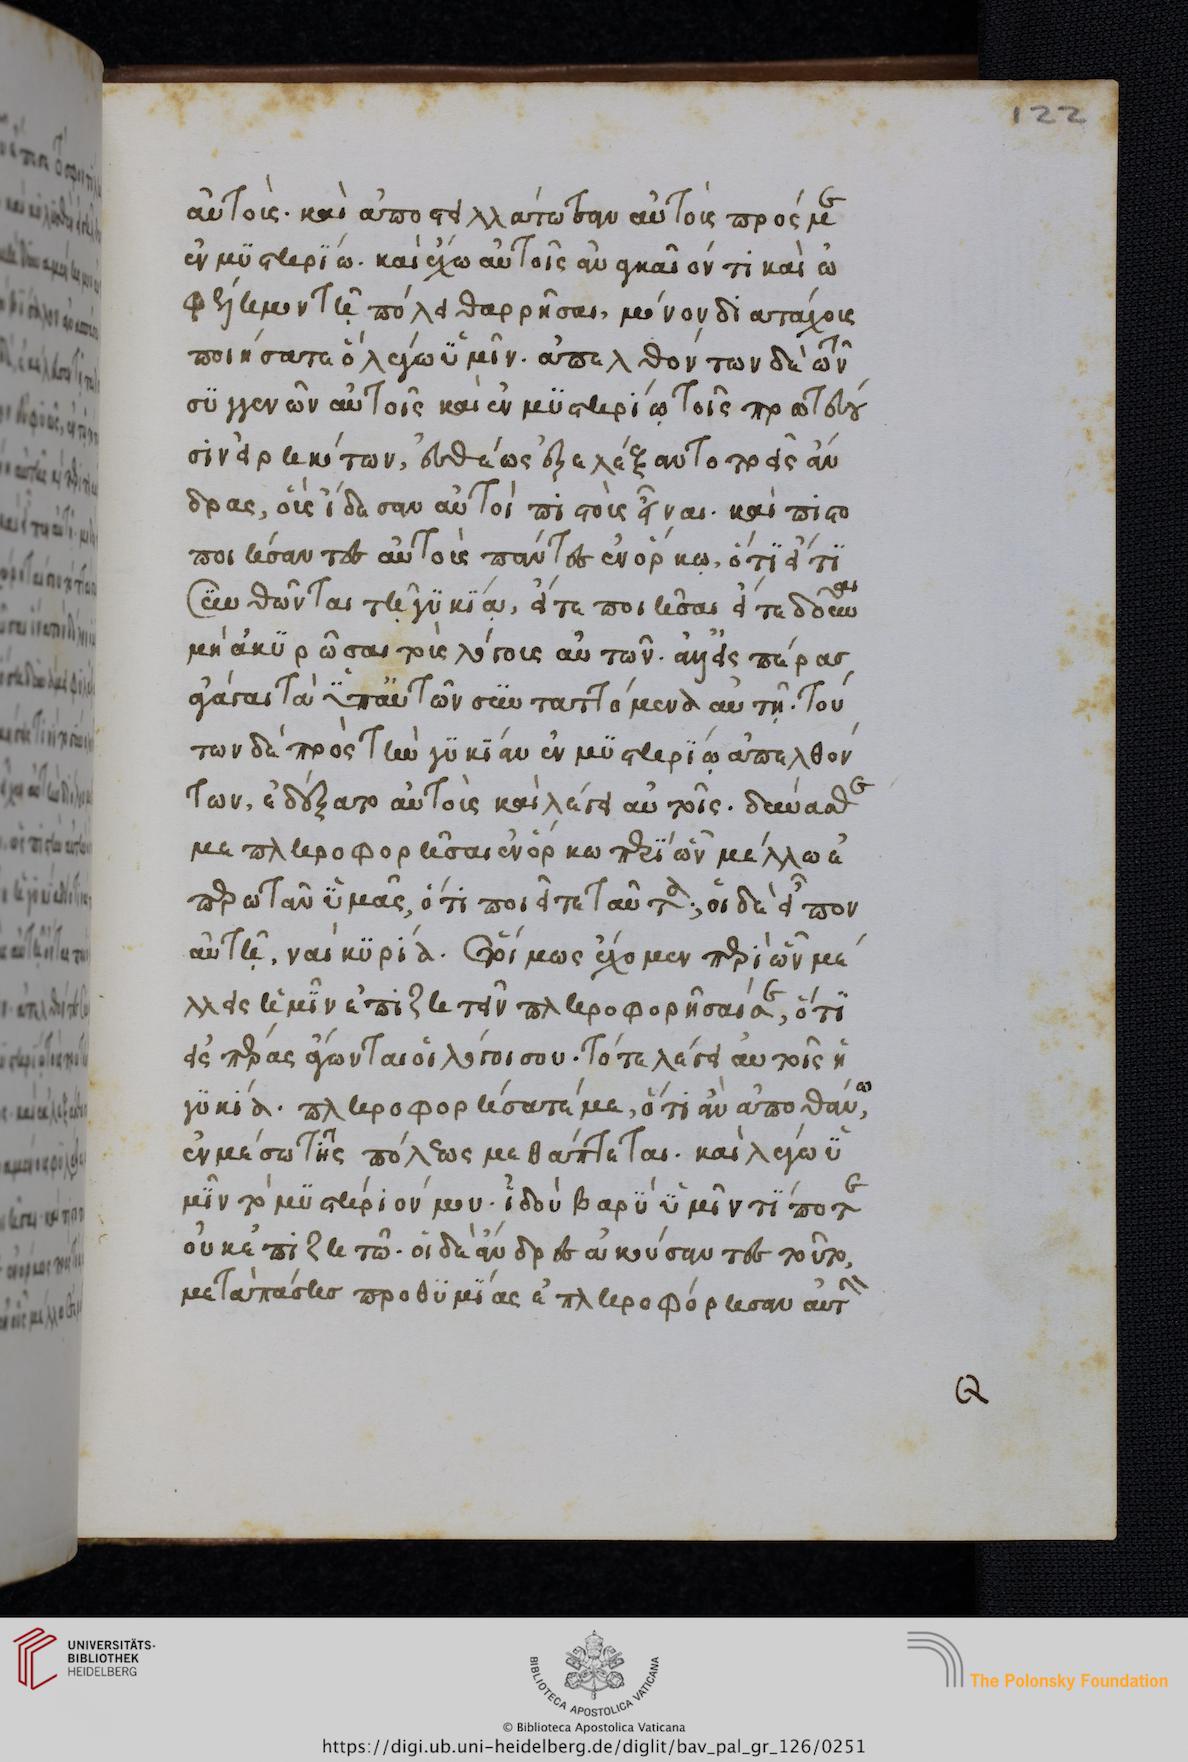 122
αὐτοὺς· καὶ ἀποστειλλάτωσαν αὐτοὺς πρός με
ἐν μϋστηρίω· καὶ ἔχω αὐτοῖς ἀναγκαῖόν τι καὶ ὠ
φέλημον τῆ πόλει θαρρῆσαι, μόνον διαταχους
ποιήσατε ὃ λέγω ϋμῖν· ἀπελθόντων δὲ τῶν
σϋγγενῶν αὐτοῖς καὶ ἐν μϋστηρίῳ τοῖς πρωτεύου
σιν εἰρηκότων, εὐθέως ἐξελέξαντο τρεῖς ἄν
δρας, οὓς ἴδεσαν αὐτοὶ πιστοὺς εἶναι· καὶ πιστο
ποιήσαντες αὐτοὺς πάντες ἐν ὅρκῳ, ὅτι εἴ τι
συνθῶνται τῇ γϋκίᾳ, εἴτε ποιῆσαι εἴτε δοῦναι
μὴ ἀκϋρῶσαι τοὺς λόγους αὐτῶν· ἀλλ' εἰς πέρας
ἀγάγαι τὰ ϋπ' αὐτῶν συνταττόμενα αὐτῇ· τού
των δὲ πρὸς τὴν γϋκίαν ἐν μϋστηρίῳ ἀπελθόν
των, ἐδέξατο αὐτοὺς καὶ λέγει αὐτοῖς· δύνασθε
με πληροφορῆσαι ἐν ὅρκω περὶ ὧν μέλλω ἐ
περωτᾶν ϋμᾶς, ὅτι ποιεῖτε ταῦτα; οἱ δὲ εἶπον
αὐτῇ, ναὶ κϋρία· ἑτοίμως ἔχομεν περὶ ὧν μέ
λλεις ἡμῖν ἐπιζητεῖν πληροφορῆσαί σε, ὅτι
εἰς πέρας ἄγωνται οἱ λόγοι σου· τότε λέγει αὐτοῖς ἡ
γϋκία· πληροφορήσατέ με, ὅτι ἂν ἀποθάνω,
ἐν μέσω τῆς πόλεως με θάπτεται· καὶ λέγω ϋ
μῖν τὸ μϋστήριόν μου· ἰδοὺ βαρϋ ϋμῖν τίποτε
οὐκ ἐπιζητῶ· οἱ δὲ ἄνδρες ἀκούσαντες τοῦτο,
μετὰ πάσης προθϋμίας ἐπληροφόρησαν αὐτὴν
Q
UNIVERSITÄTS-
BIBLIOTHEK
HEIDELBERG
BIBLIOTECA APOSTOLICA VATICANA
© Biblioteca Apostolica Vaticana
The Polonsky Foundation
https://digi.ub.uni-heidelberg.de/diglit/bav_pal_gr_126/0251